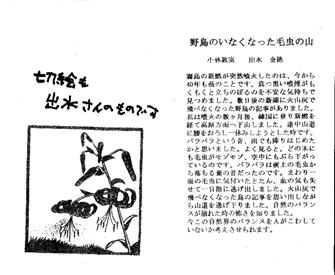 切絵も
出水さんのものです
野鳥のいなくなった毛虫の山
小林教室 出水 金徳
霧島の新燃が突然噴火したのは、今から
40年も前のことです。真っ黒い噴煙がも
くもくと立ちのぼるのを不安な気持ちで
見つめました。数日後の新聞に火山灰で
飛べなくなった野鳥の記事がありました。
私は噴火の数ヶ月後、韓国に登り新燃を
経て高原方面へ下山しました。途中山道
に腰をおろし一休みしようとした時です。
パラパラという音、雨でも降りはじめた
かと思いました。よく見ると、どの木に
も毛虫がモゾモゾ、空中にもぶら下がっ
ているのです。パラパラは樹上の毛虫か
ら落ちる糞の音だったのです。まわり一
面の毛虫に気付いたとたん、血の気も失
せて一目散に逃げ出しました。火山灰で
飛べなくなった鳥の記事を思い出しなが
ら山道を逃げ下りました。自然のバランス
が崩れた時の怖さを知りました。
今この自然界のバランスを人がこわして
いないか考えさせられます。